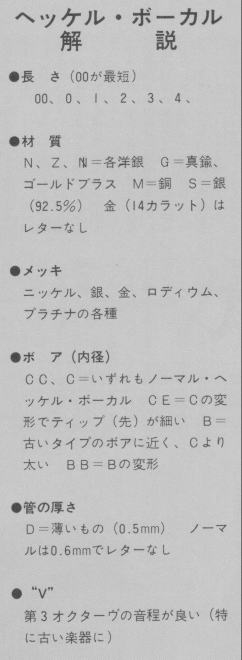 ヘッケル・ボーカル
解　説
●長　さ（00が最短）
00、0、1、2、3、4、
●材　質
N、Z、N＝各洋銀　G＝真鍮、
ゴールドブラス　M＝銅　S＝銀
（92.5％）　金（14カラット）は
レターなし
●メッキ
ニッケル、銀、金、ロディウム、
プラチナの各種
●ボ　ア（内径）
CC、C＝いずれもノーマル・ヘ
ッケル・ボーカル　CE＝Cの変
形でティップ（先）が細い　B＝
古いタイプのボアに近く、Cより
太い　BB＝Bの変形
●管の厚さ
D＝薄いもの（0.5mm）　ノーマ
ルは0.6mmでレターなし
●“V”
第3オクターヴの音程が良い（特
に古い楽器に）